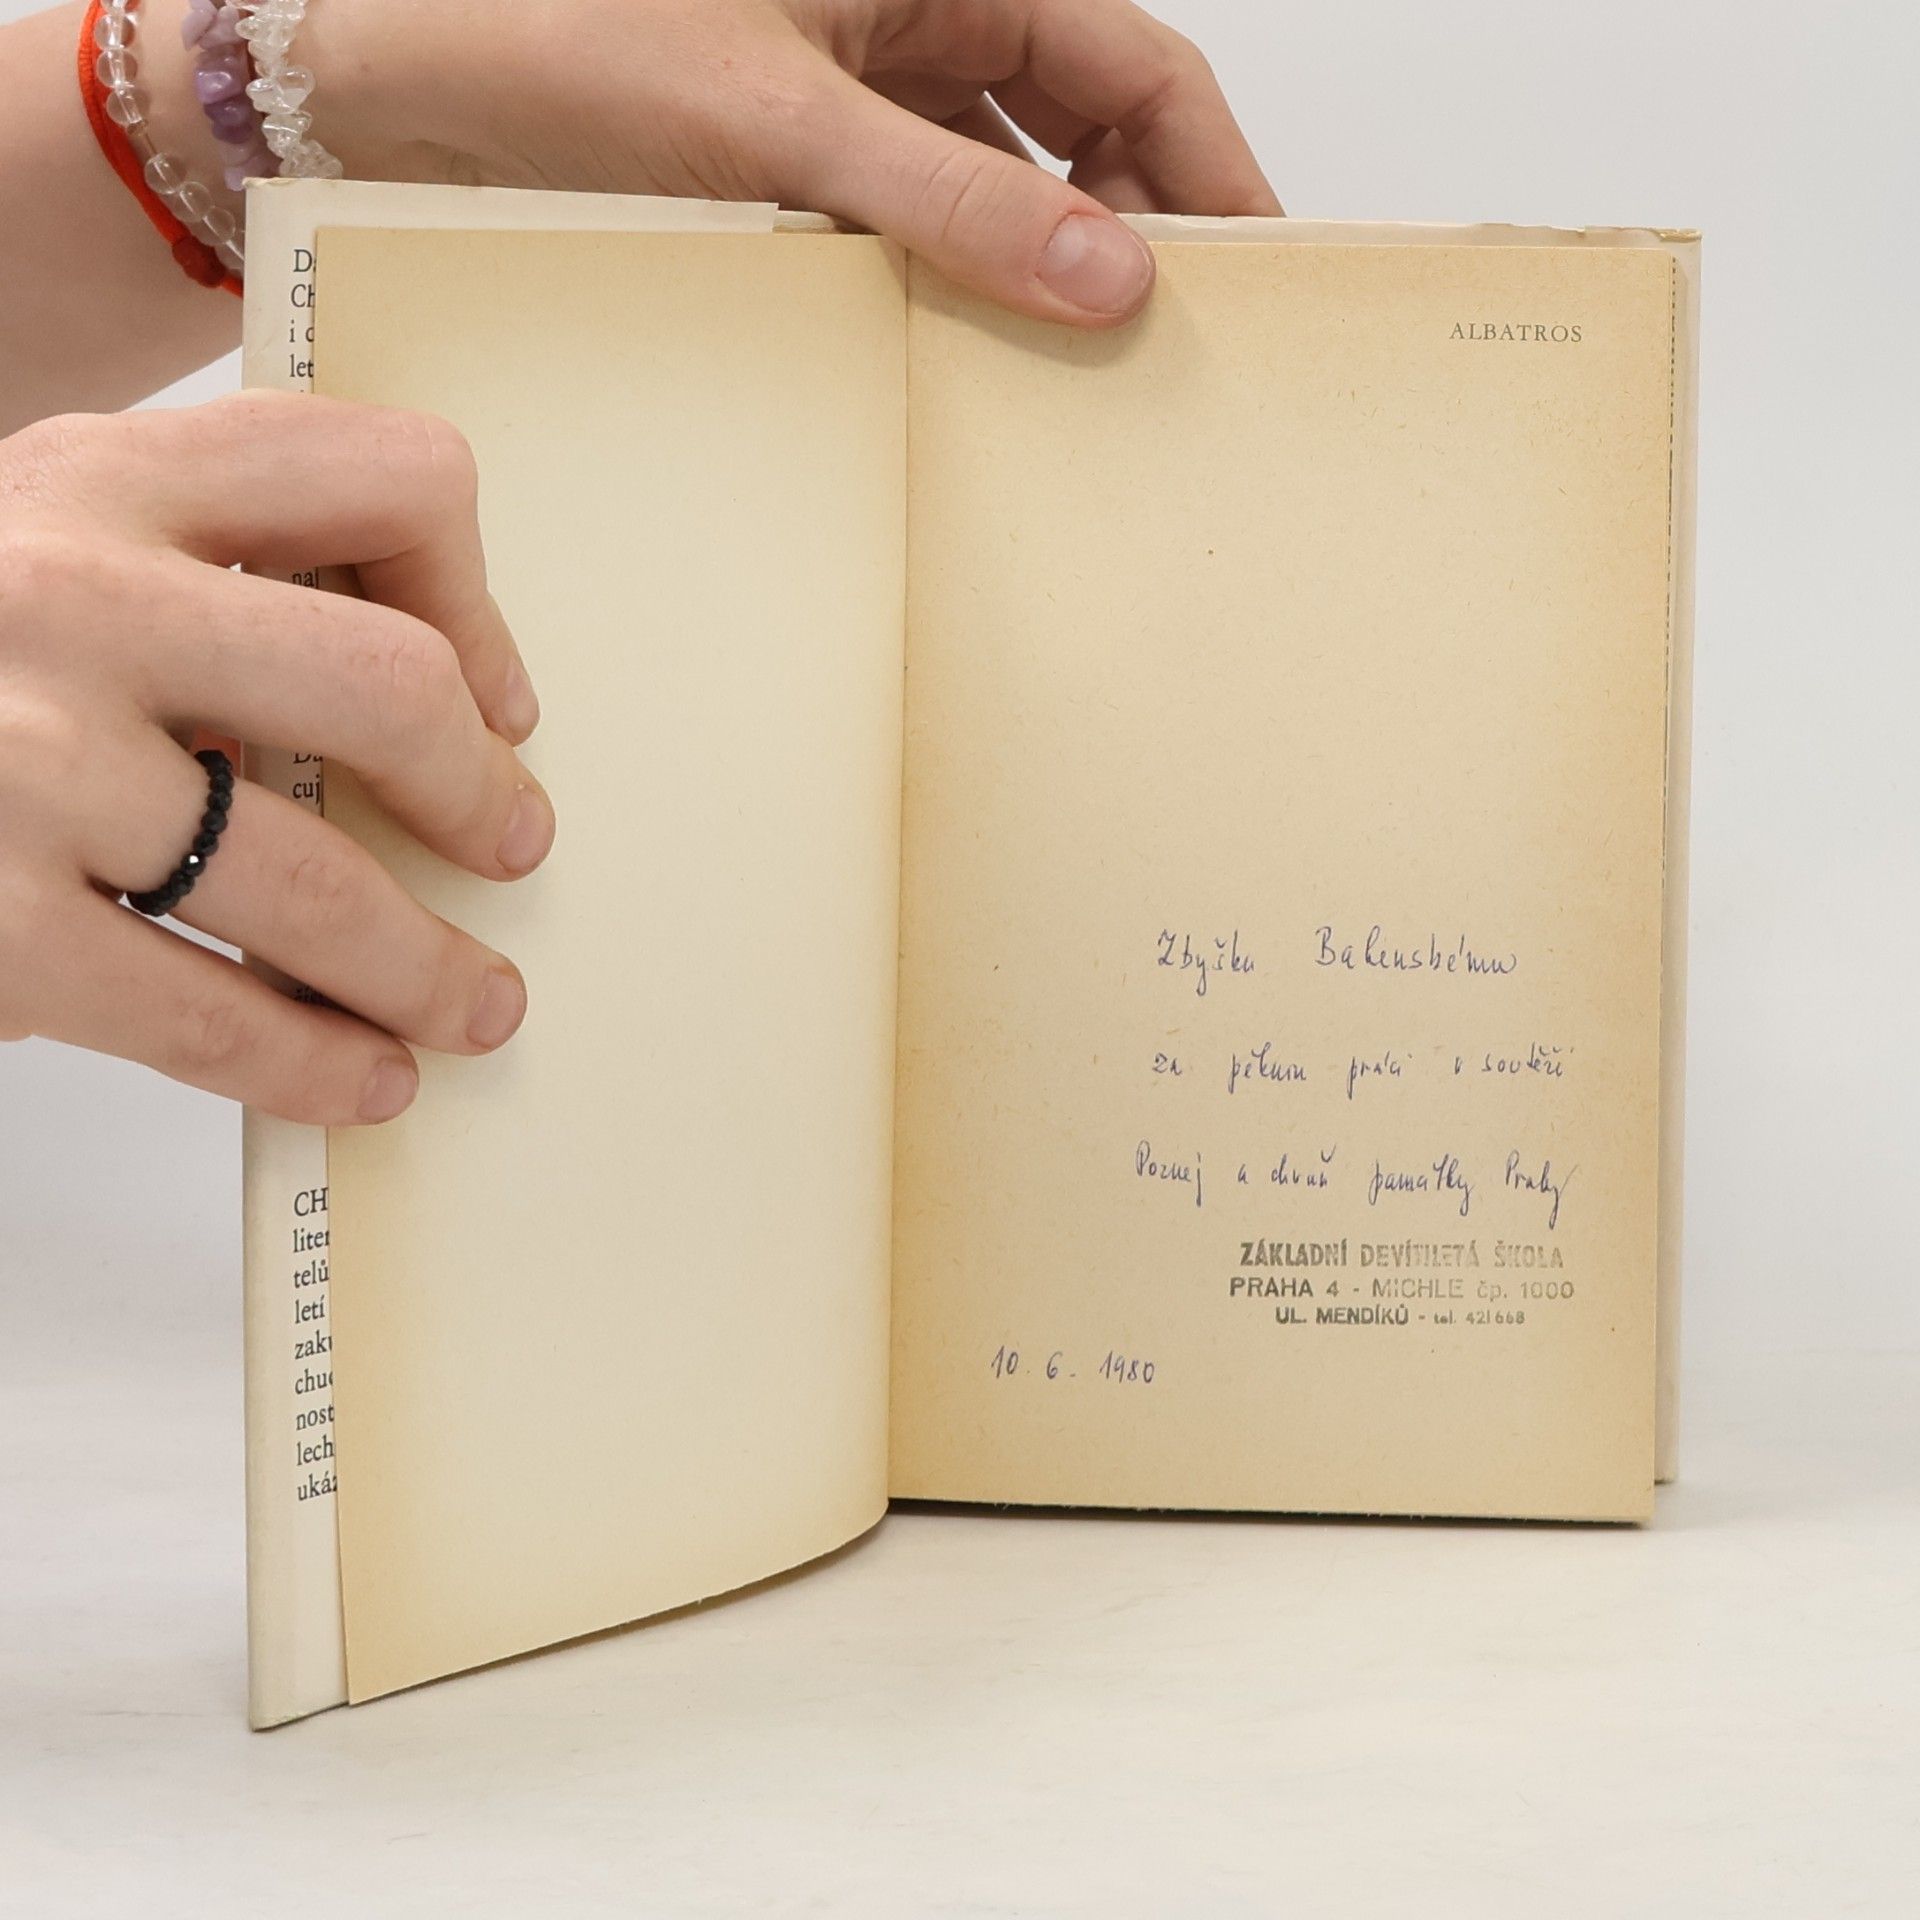 Da
CH
i c
let
nař
cuj
CH
liter
telů
letí
zaku
chud
nost
lech
ukáz
ALBATROS
Zbyšku Bakenskému
za pěknou práci v soutěži
Poznej a chraň památky Prahy
ZÁKLADNÍ DEVÍTILETÁ ŠKOLA
PRAHA 4 - MICHLE čp. 1000
UL. MENDÍKŮ - tel. 421668
10. 6. 1980